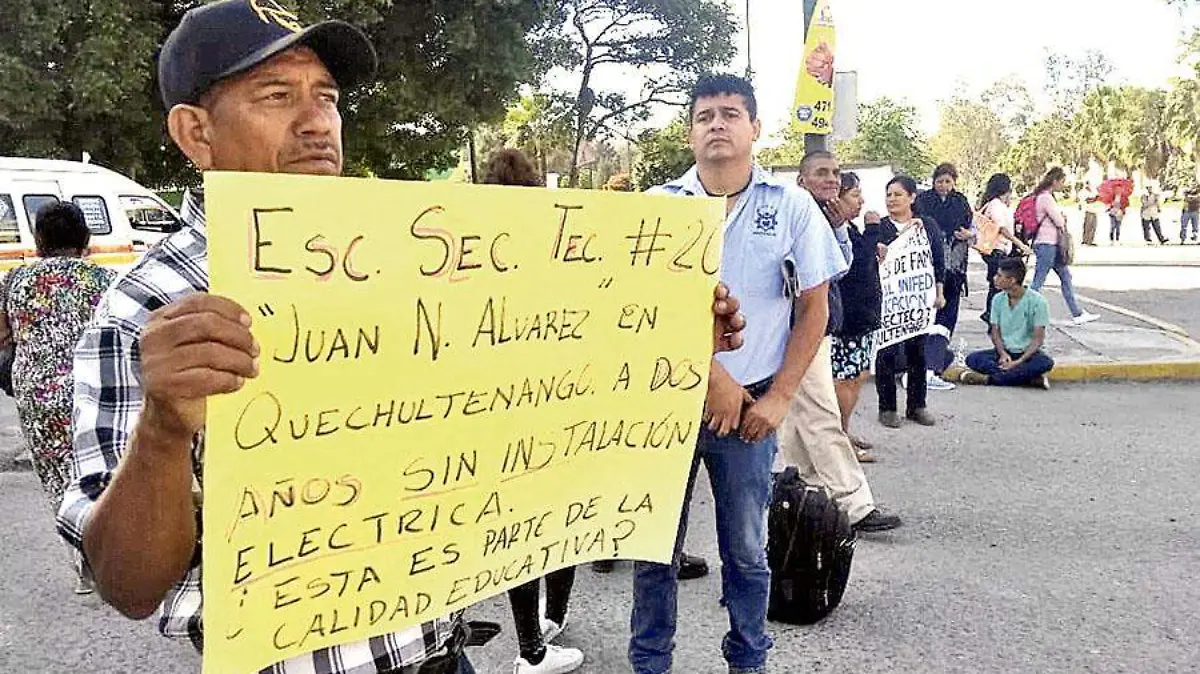 ESC. SEC. TEC. #20
"JUAN N. ALVAREZ" EN
QUECHULTENANGO. A DOS
AÑOS SIN INSTALACIÓN
ELECTRICA.
¿ESTA ES PARTE DE LA
CALIDAD EDUCATIVA?
S DE FAM
UNIFED
CACION
471
494